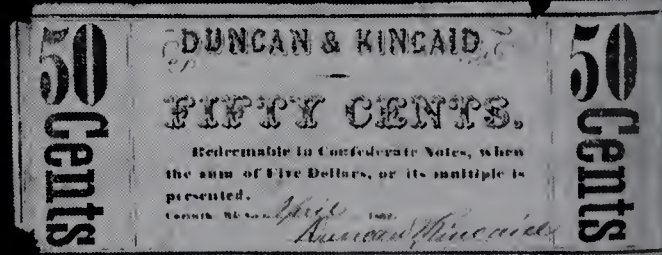 50 Cents
DUNCAN & KINCAID
FIFTY CENTS.
Redeemable in Confederate Notes, when
the sum of Five Dollars, or its multiple is
presented.
April
Duncan & Kincaid
50 Cents